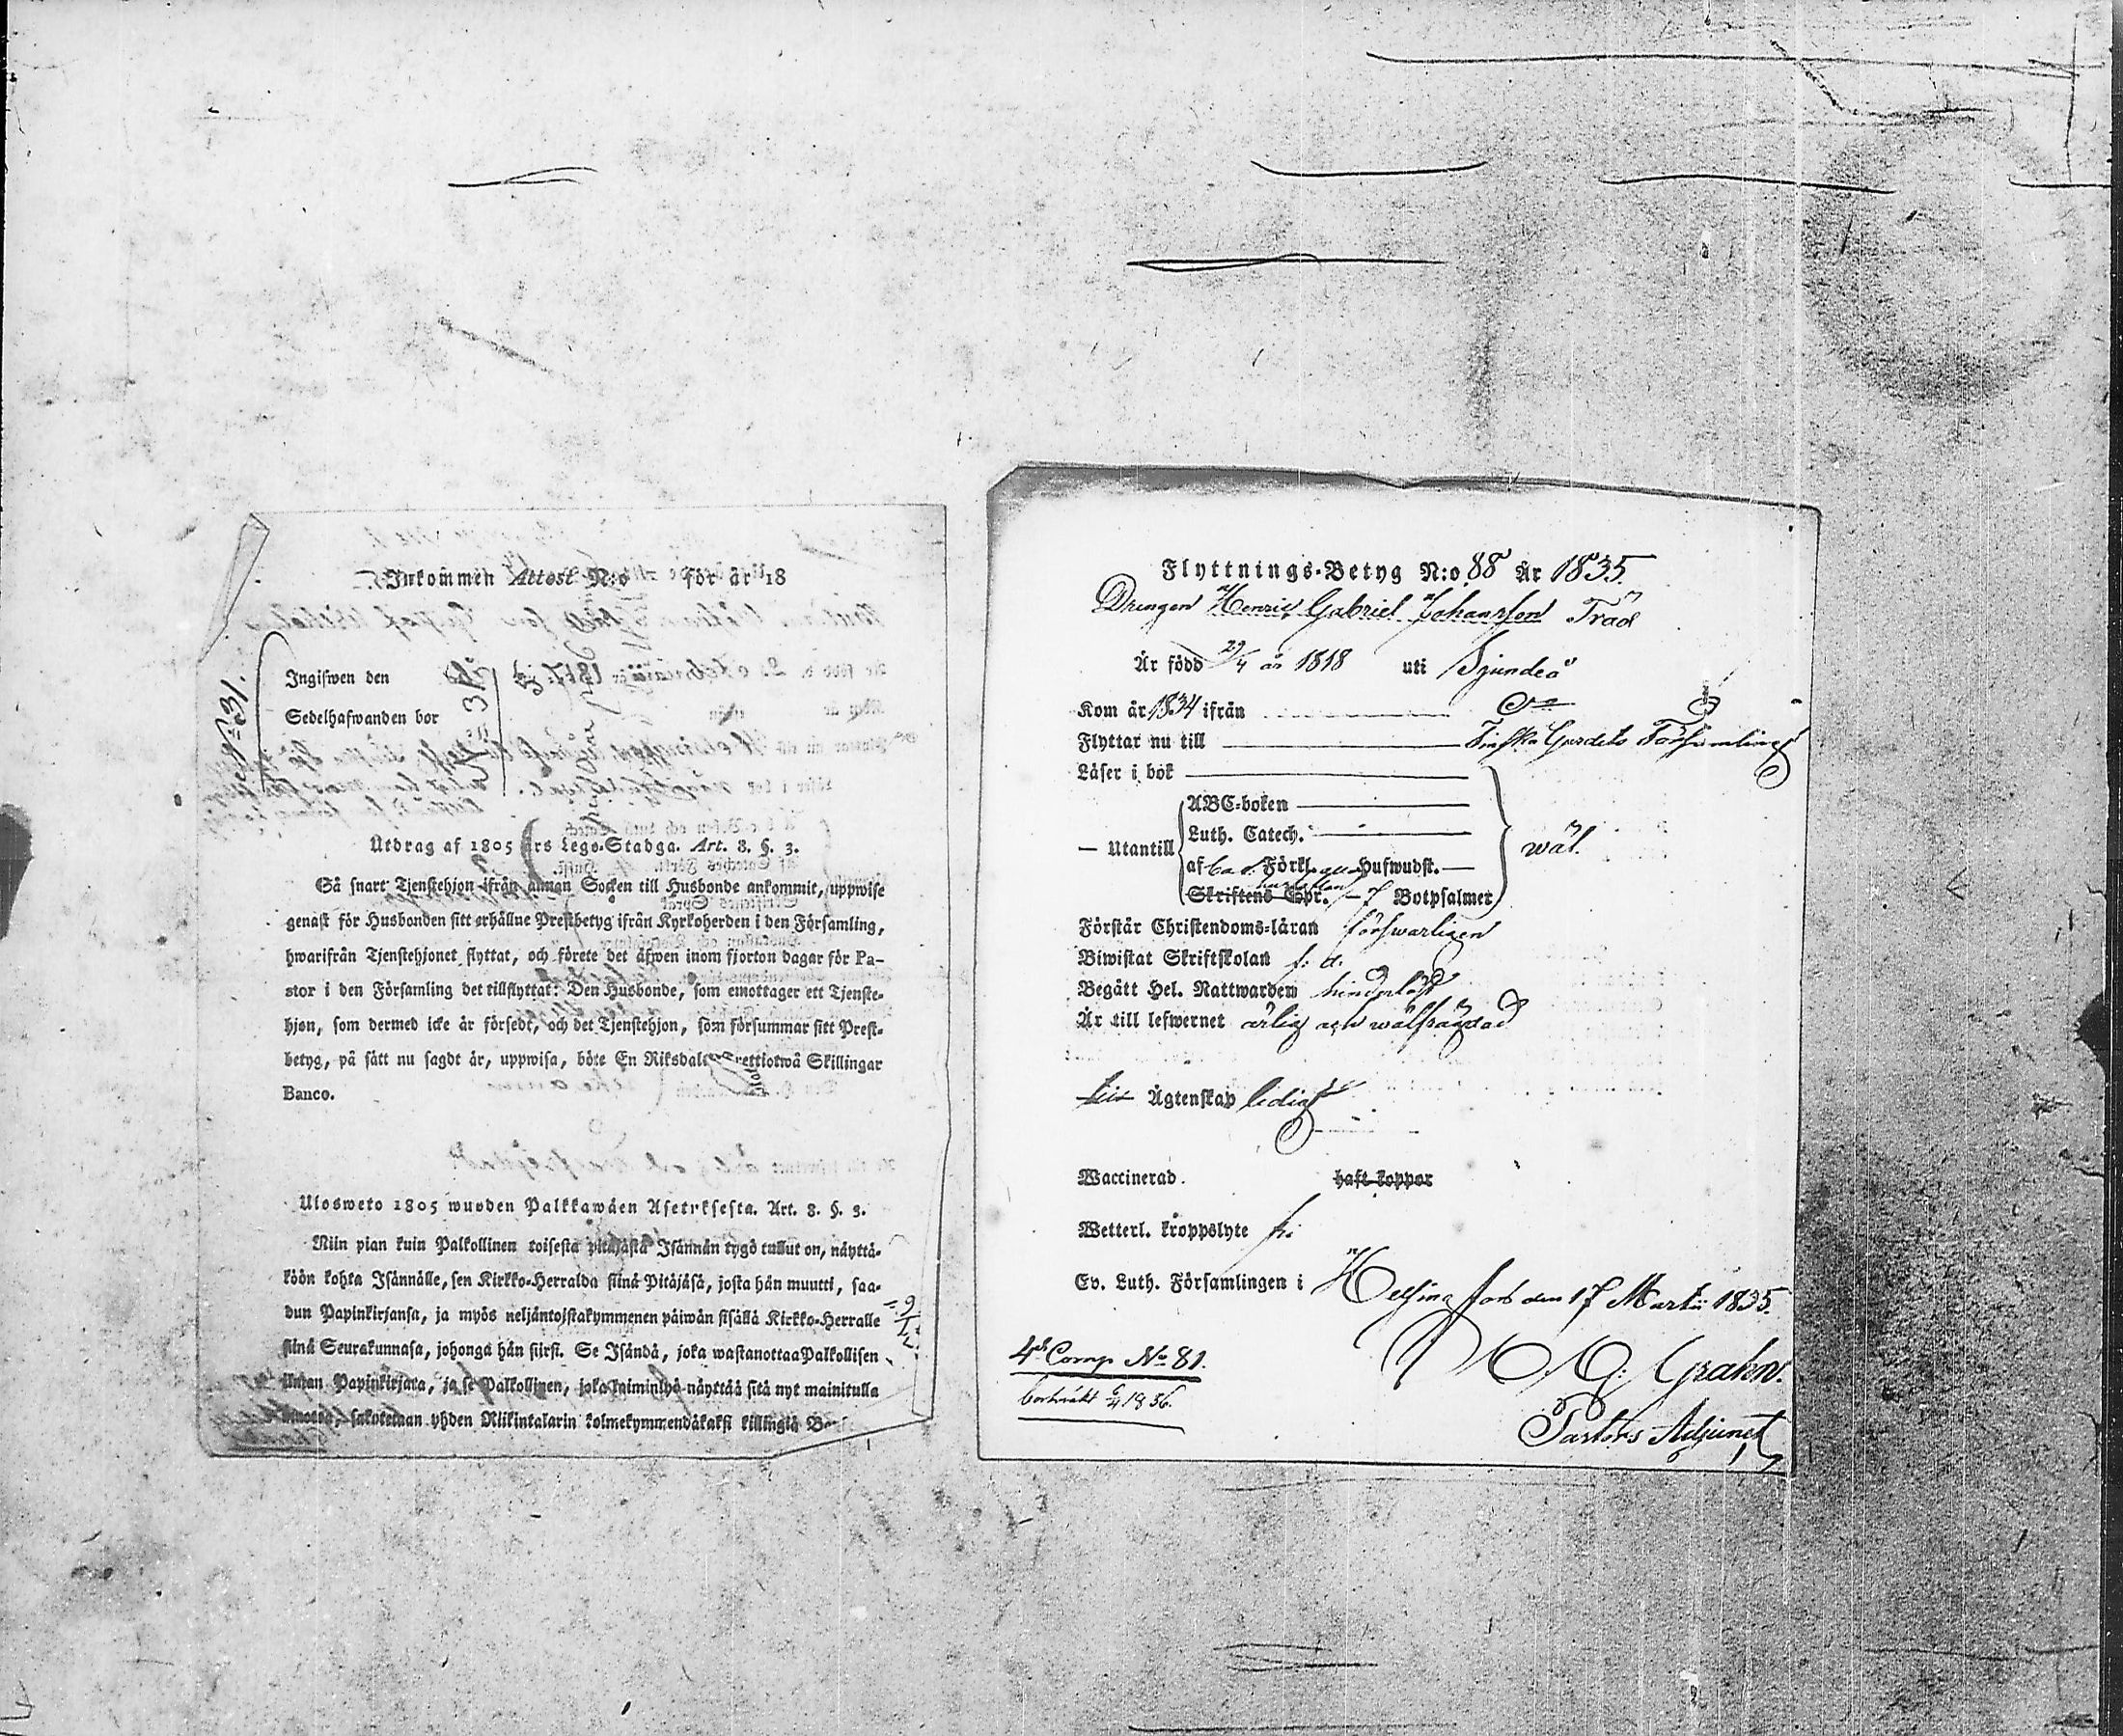 Inkommen Attest N:o för år 18
N:o 31.
Ingifwen den
Sedelhafwanden bor
N:o 31
Utdrag af 1805 års Lego-Stadga. Art. 8. §. 3.
Så snart Tjenstehjon ifrån annan Socken till Husbonde ankommit, uppwise
genast för Husbonden sitt erhållne Prestbetyg ifrån Kyrkoherden i den Församling,
hwarifrån Tjenstehjonet flyttat, och förete det äfwen inom fjorton dagar för Pa-
stor i den Församling det tillflyttat: Den Husbonde, som emottager ett Tjenste-
hjon, som dermed icke är försedt, och det Tjenstehjon, som försummar sitt Prest-
betyg, på sätt nu sagdt är, uppwisa, böte En Riksdaler Trettiotwå Skillingar
Banco.
Ulosweto 1805 wuoden Palkkawäen Asetuksesta. Art. 8. §. 3.
Niin pian kuin Palkollinen toisesta pitäjästä Isännän tygö tullut on, näyttä-
köön kohta Isännälle, sen Kirkko-Herralda siinä Pitäjäsä, josta hän muutti, saa-
dun Papinkirjansa, ja myös neljäntoistakymmenen päiwän sisällä Kirkko-Herralle
siinä Seurakunnasa, johonga hän siirsi. Se Isändä, joka wastanottaa Palkollisen
ilman Papinkirjata, ja se Palkollinen, joka laiminlyö näyttää sitä nyt mainitulla
muotoa, sakotetaan yhden Riikintalarin kolmekymmendäkaksi killingiä
Flyttnings-Betyg N:o 88 År 1835.
Drengen Henric Gabriel Johansson Träd
Är född 29/4 år 1818 uti Sjundeå
Kom år 1834 ifrån
Flyttar nu till Finska Gardets Församling
Läser i bok
ABC-boken
Luth. Catech.
— Utantill wäl.
af Förkl. Hufwudst.
Skriftens Spr. — 7 Botpsalmer
Förstår Christendoms-läran förswarligen
Biwistat Skriftskolan f. d.
Begått Hel. Nattwarden hinderlöst
Är till lefwernet ärlig och wälfrägdad
Ägtenskap ledig
Waccinerad. haft koppor
Wetterl. kroppslyte fri
Ev. Luth. Församlingen i Helsingfors den 17 Martii 1835.
Grahn.
Pastors Adjunct
4de Comp. No 81.
1836.